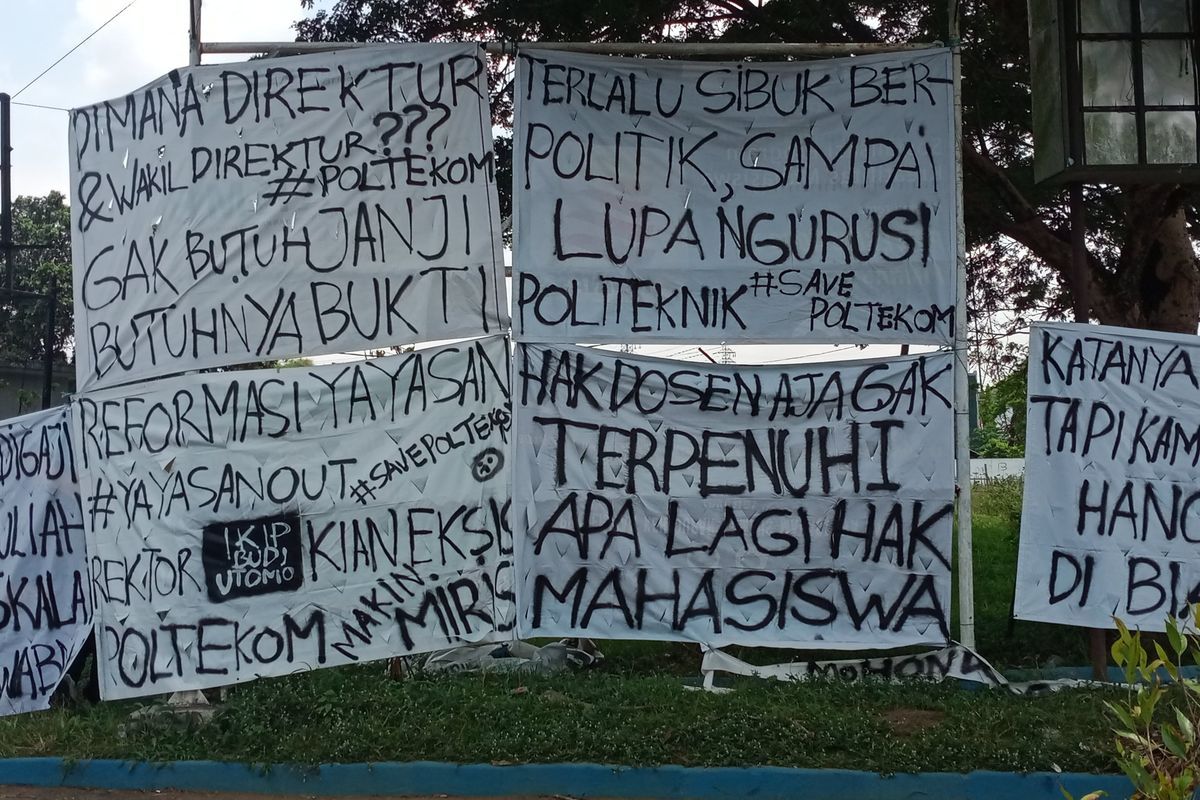 DIMANA DIREKTUR
& WAKIL DIREKTUR???
#POLTEKOM
GAK BUTUH JANJI
BUTUHNYA BUKTI
TERLALU SIBUK BER-
POLITIK, SAMPAI
LUPA NGURUSI
POLITEKNIK #SAVE
POLTEKOM
DIGAJI
REFORMASI YAYASAN
#YAYASANOUT #SAVEPOLTEKOM
REKTOR IKIP BUDI UTOMO KIAN EKSIS
POLTEKOM MAKIN MIRIS
HAK DOSEN AJA GAK
TERPENUHI
APA LAGI HAK
MAHASISWA
MOHON
KATANYA
TAPI KAM
HANC
DI BI